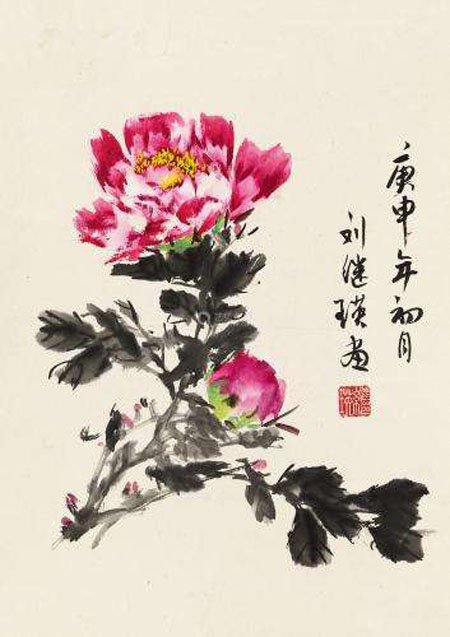 庚申年初月
刘继瑛画